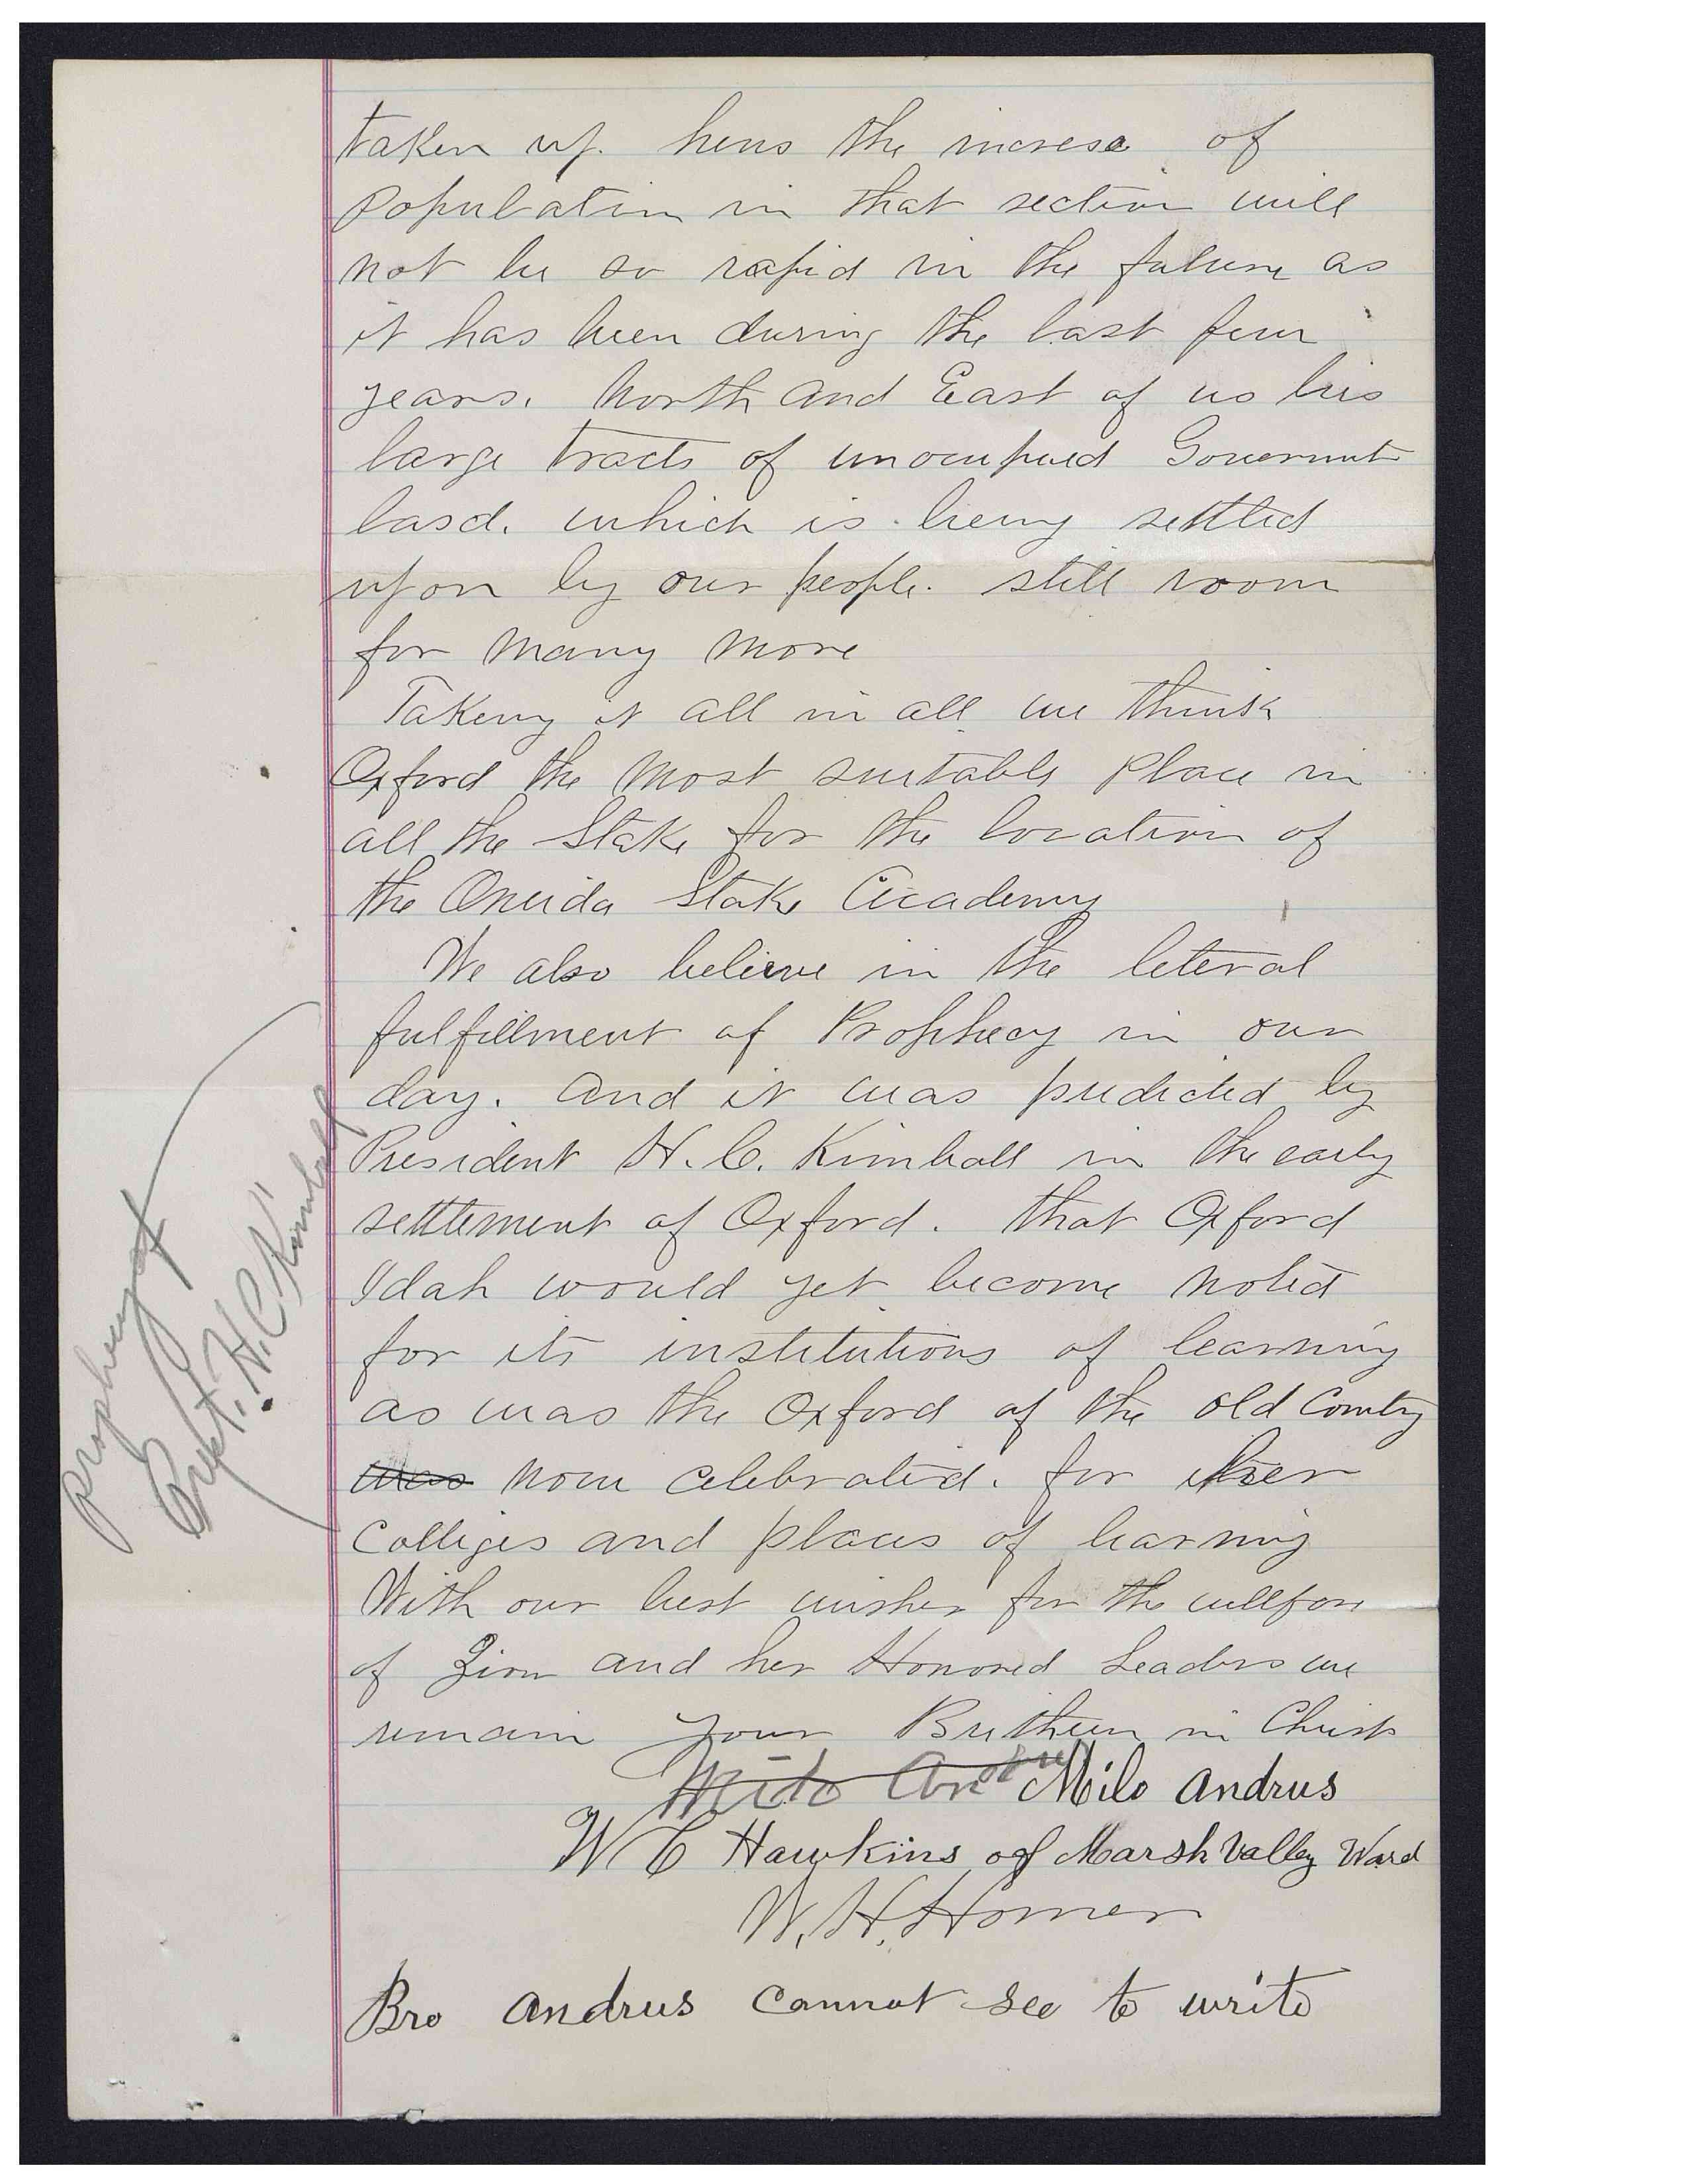 taken up. hens the increse of
population in that section will
not be so rapid in the future as
it has been during the last few
years. North and East of us lies
large tracts of unocupied Goverment
lasd. which is being settled
upon by our people. still room
for many more
Taking it all in all we think
Oxford the most suitable place in
all the Stake for the location of
the Oneida Stake Academy
We also believe in the leteral
fulfillment of Prophecy in our
day. and it was predicted by
President H. C. Kimball in the early
settlement of Oxford. that Oxford
Idah would yet become noted
for its institutions of learning
as was the Oxford of the old Country
was now celebrated. for her
Colleges and places of learning
With our best wishes for the wellfare
of Zion and her Honored Leaders we
remain your Bretheren in Christ
Milo Andrus Milo Andrus
W C Hawkins of Marsh Valley Ward
W. H. Homer
Bro Andrus cannot see to write
Prophecy of
Prest. H. C. Kimball